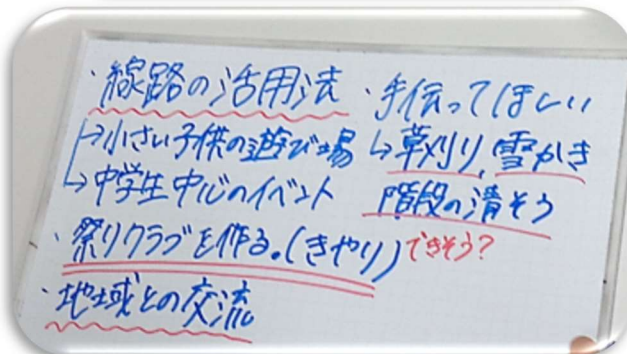 ・線路の活用法
→小さい子供の遊び場
→中学生中心のイベント
・祭りクラブを作る。(きやり)できそう?
・地域との交流
・手伝ってほしい
→草刈り,雪かき
階段の清そう